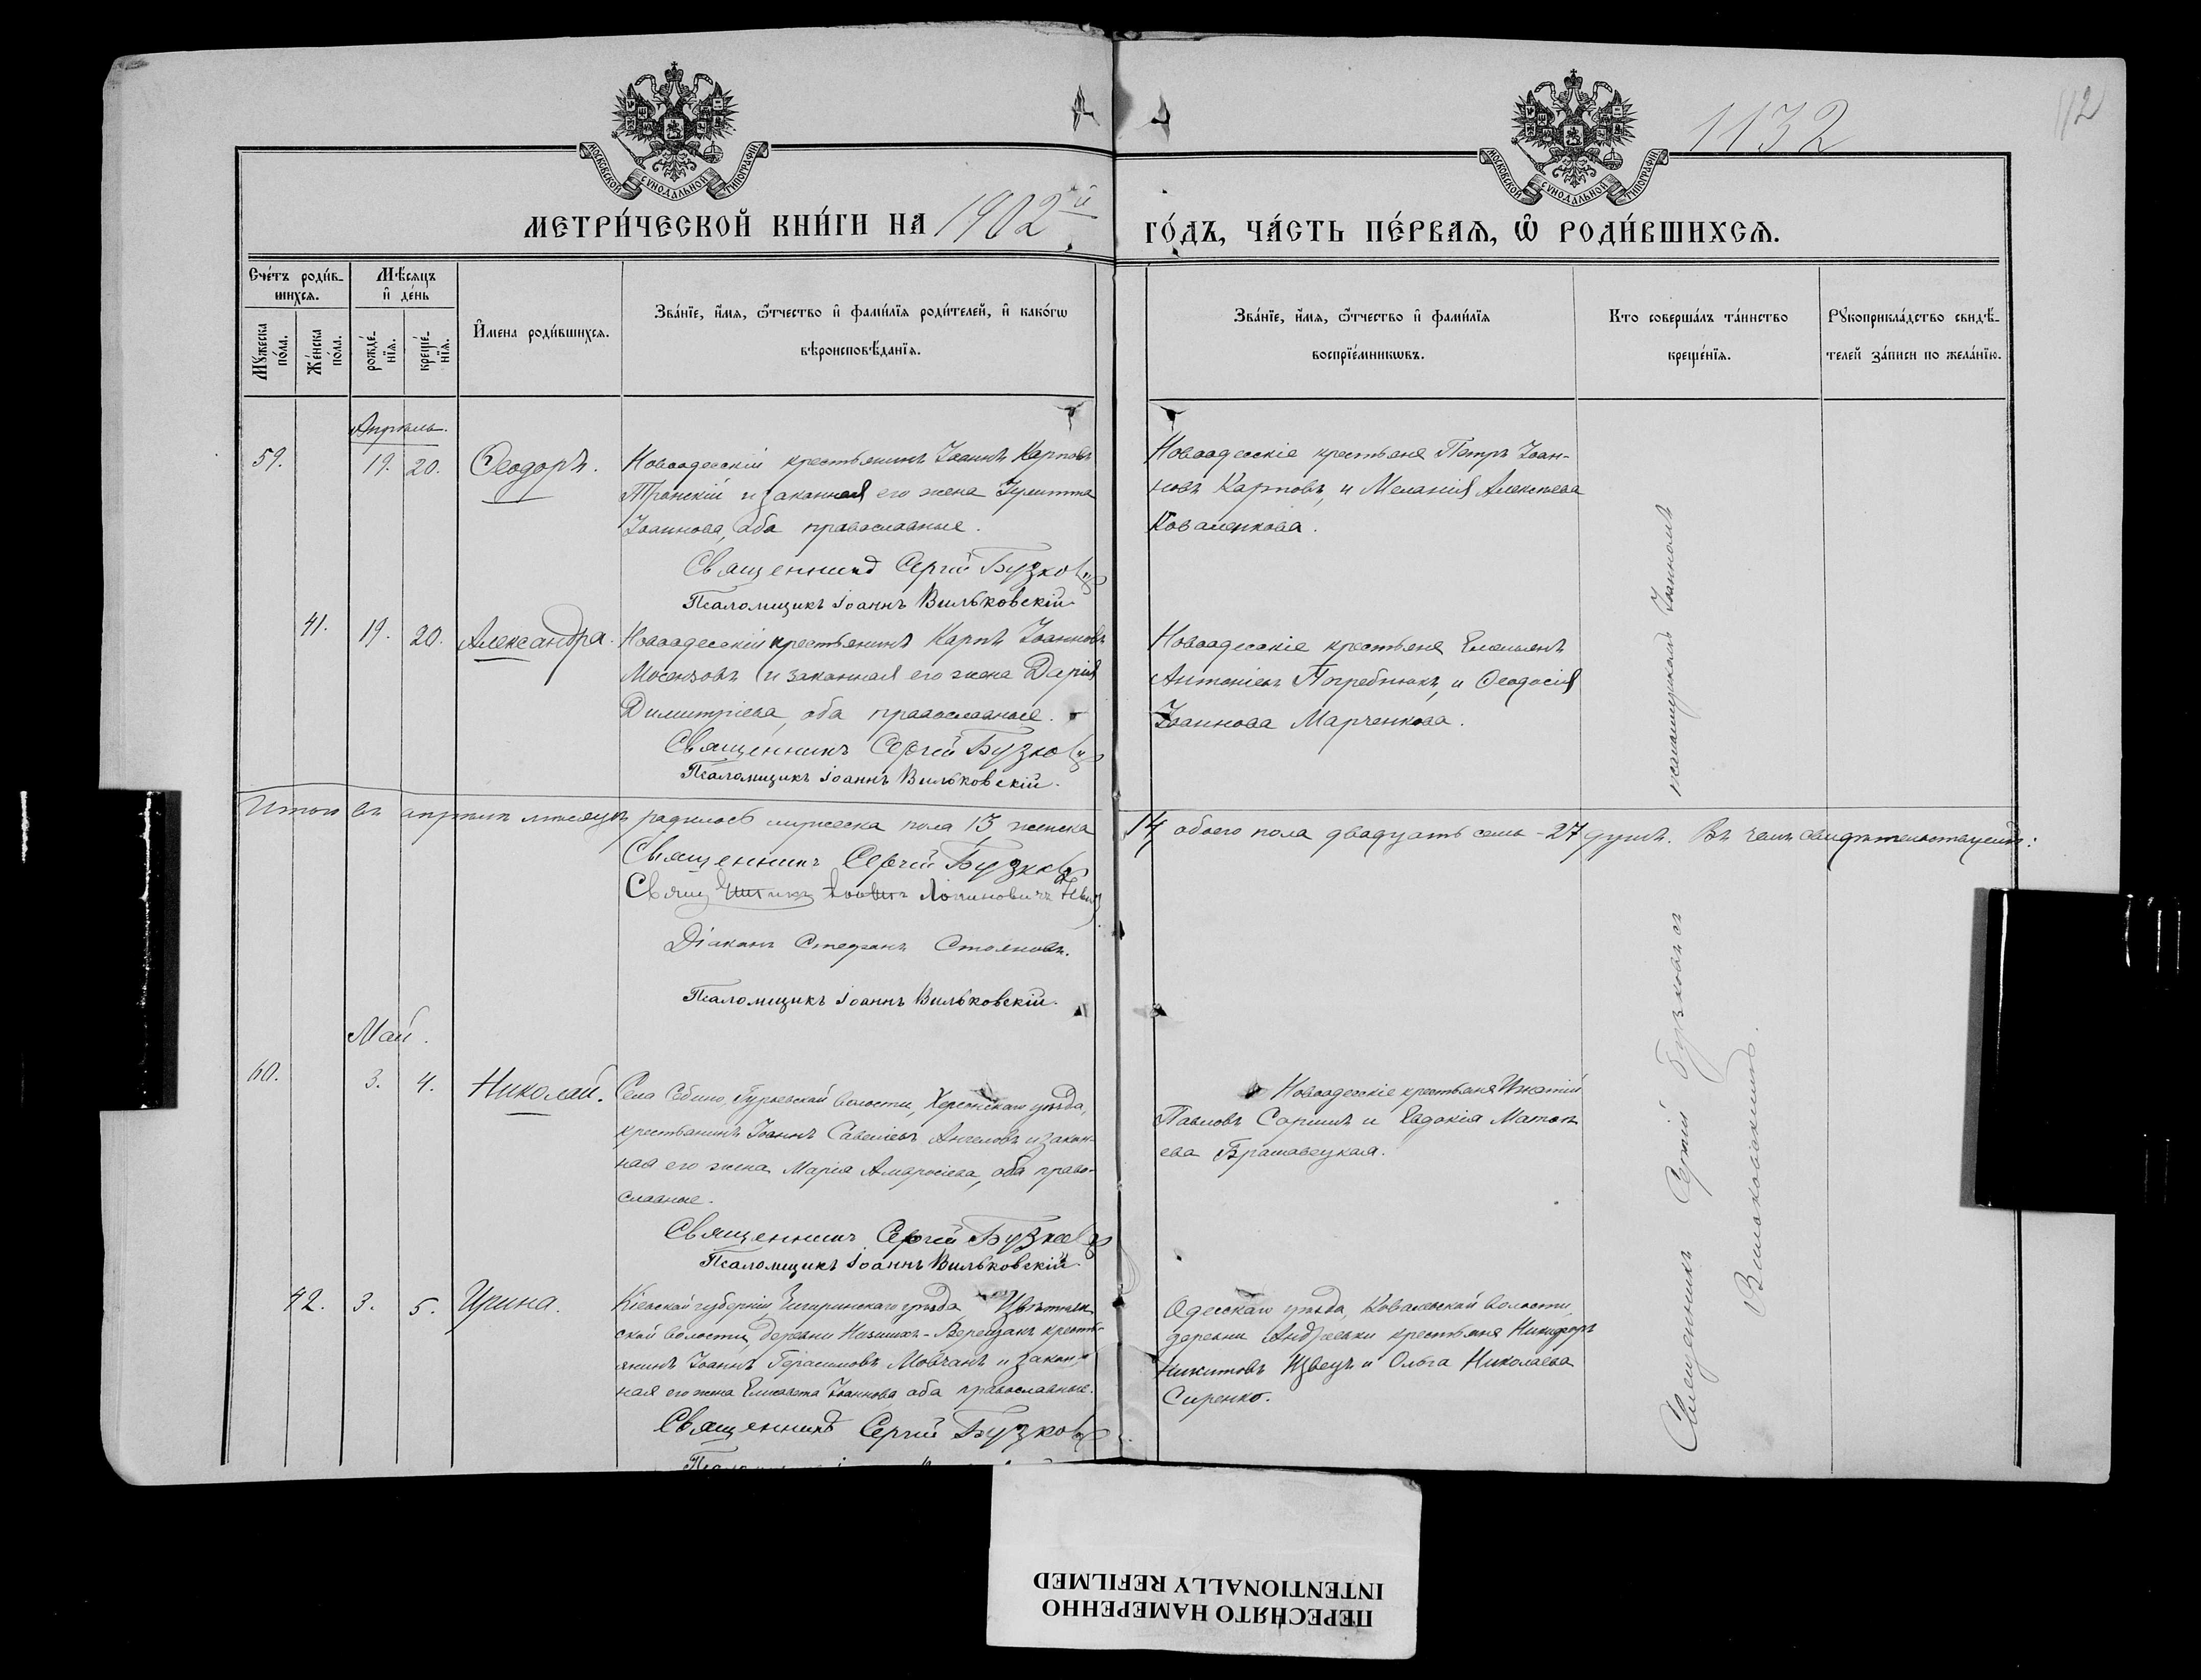 1132
112
МОСКОВСКОЙ СѴНОДАЛЬНОЙ ТИПОГРАФІИ
МОСКОВСКОЙ СѴНОДАЛЬНОЙ ТИПОГРАФІИ
МЕТРИ́ЧЕСКОЙ КНИ́ГИ НА 1902й
ГО́ДЪ, ЧА́СТЬ ПЕ́РВАѦ, Ѡ РОДИ́ВШИХСѦ.
Сче́тъ роди́в-
шихсѧ.
Мѣ́сяцъ
и҆ де́нь
Мꙋ́жеска
по́ла.
Же́нска
по́ла.
рожде́-
нїѧ.
креще́-
нїѧ.
И҆мена роди́вшихсѧ.
Зва́нїе, и҆́мѧ, ѿчество и҆ фами́лїѧ роди́телей, и҆ како́гѡ
вѣроисповѣ́данїѧ.
Зва́нїе, и҆́мѧ, ѿчество и҆ фами́лїѧ
воспрїе́мникѡвъ.
Кто соверша́лъ та́инство
креще́нїѧ.
Рꙋкоприкла́дство свидѣ́-
телей за́писи по жела́нїю.
Апрѣль.
59. 19. 20. Ѳеодоръ.
Новоодесскій крестьянинъ Іоаннъ Карповъ
и законная его жена Іулитта
Іоаннова, оба православные.
Священникъ Сергій Бузков
Псаломщикъ Іоаннъ Вильковскій.
Новоодесскіе крестьяне Петръ Іоан-
новъ Карповъ, и Меланія Алексѣева
Коваленкова.
41. 19. 20. Александра.
Новоодесскій крестьянинъ Карпъ Іоанновъ
и законная его жена Дарія
Димитріева, оба православные.
Священникъ Сергій Бузков
Псаломщикъ Іоаннъ Вильковскій.
Новоодесскіе крестьяне Емельянъ
Антоніевъ Погребнякъ, и Ѳеодосія
Іоаннова Марченкова.
Итого въ апрѣлѣ мѣсяцѣ родилось мужеска пола 13, женска
14, обоего пола двадцать семь - 27 душъ. Въ чемъ свидѣтельствуемъ:
Священникъ Сергій Бузков
Діаконъ Стефанъ Стояновъ.
Псаломщикъ Іоаннъ Вильковскій.
Май.
60. 3. 4. Николай.
Села Себино, Гурьевской волости, Херсонскаго уѣзда,
крестьянинъ Іоаннъ Савеліевъ Ангеловъ и закон-
ная его жена Марія Амвросіева, оба право-
славные.
Священникъ Сергій Бузков
Псаломщикъ Іоаннъ Вильковскій.
Новоодесскіе крестьяне Игнатій
Павловъ и Евдокія Матѳѣ-
ева
42. 3. 5. Ирина.
Кіевской губерніи, Чигиринскаго уѣзда Цвѣтнян-
ской волости, деревни Верещакъ кресть-
янинъ Іоаннъ Герасимовъ Мовчанъ и закон-
ная его жена Елисавета Іоаннова, оба православные.
Священникъ Сергій Бузков
Одесскаго уѣзда, Ковалевской волости,
деревни Андреевки крестьяне Никифоръ
Никитовъ Швецъ и Ольга Николаева
Сиренко.
Священникъ Сергій Бузковъ съ
псаломщикомъ Іоанномъ
Вильковскимъ.
ПЕРЕСНЯТО НАМЕРЕННО
INTENTIONALLY REFILMED